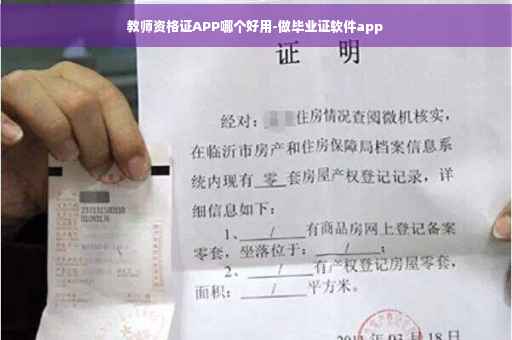 教师资格证APP哪个好用-做毕业证软件app
证 明
经对：住房情况查阅微机核实，
在临沂市房产和住房保障局档案信息系
统内现有 零 套房屋产权登记记录，详
细信息如下：
1、 / 有商品房网上登记备案
零套，坐落位于： / ；
2、 / 有产权登记房屋零套，
面积： / 平方米。
年 03 月 18 日